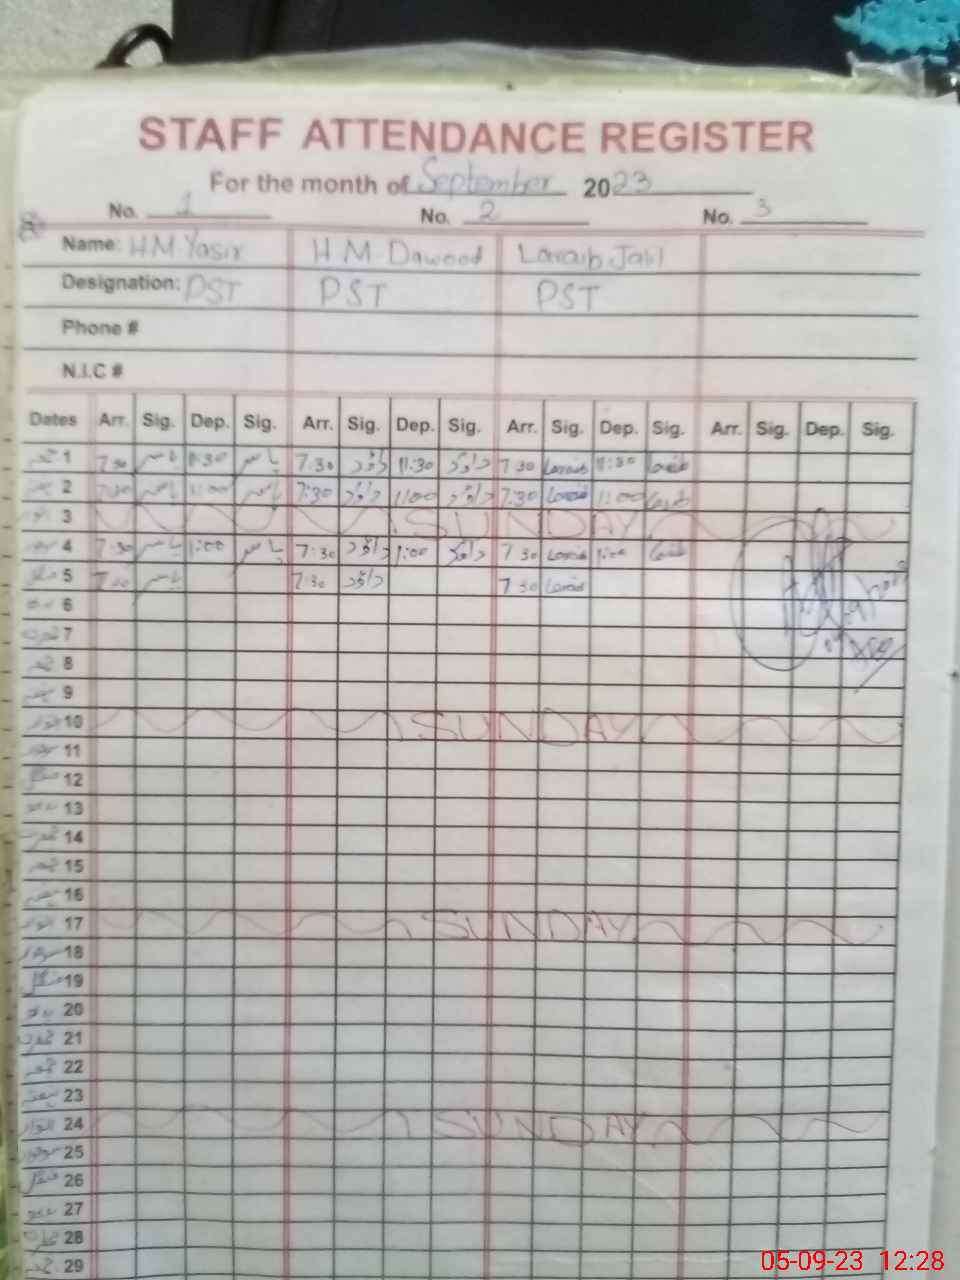 STAFF ATTENDANCE REGISTER
For the month of September 2023
No. 1 No. 2 No. 3
Name: H.M Yasir H M Dawood Laraib Jalil
Designation: PST PST PST
Phone #
N.I.C #
Dates Arr. Sig. Dep. Sig. Arr. Sig. Dep. Sig. Arr. Sig. Dep. Sig. Arr. Sig. Dep. Sig.
1 7:30 یاسر 11:30 یاسر 7:30 داؤد 11:30 داؤد 7 30 Laraib 11:30 Laraib
2 7:30 یاسر 1:00 یاسر 7:30 داؤد 1:00 داؤد 7:30 Laraib 1:00 Laraib
اتوار 3 SUNDAY
4 7:30 یاسر 1:00 یاسر 7:30 داؤد 1:00 داؤد 7 30 Laraib 1:00 Laraib
5 یاسر 7:30 داؤد 7 30 Laraib
6
7
8
9
اتوار 10 SUNDAY
11
12
13
14
15
16
اتوار 17 SUNDAY
18
19
20
21
22
23
اتوار 24 SUNDAY
25
26
27
28
29
05-09-23 12:28